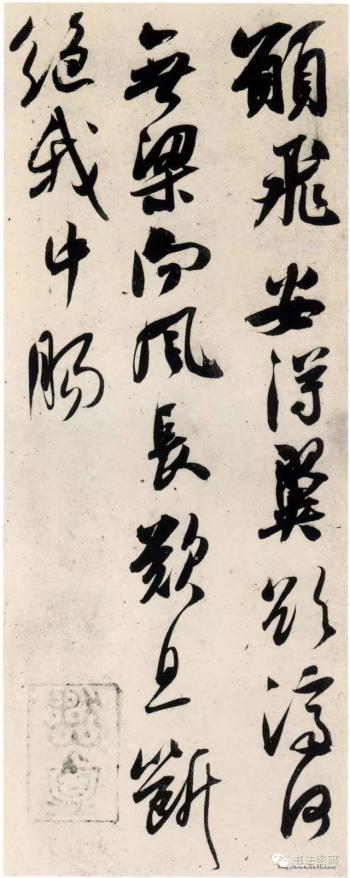 願飛安得翼欲濟河
無梁向風長歎息斷
絕我中腸
书法密码